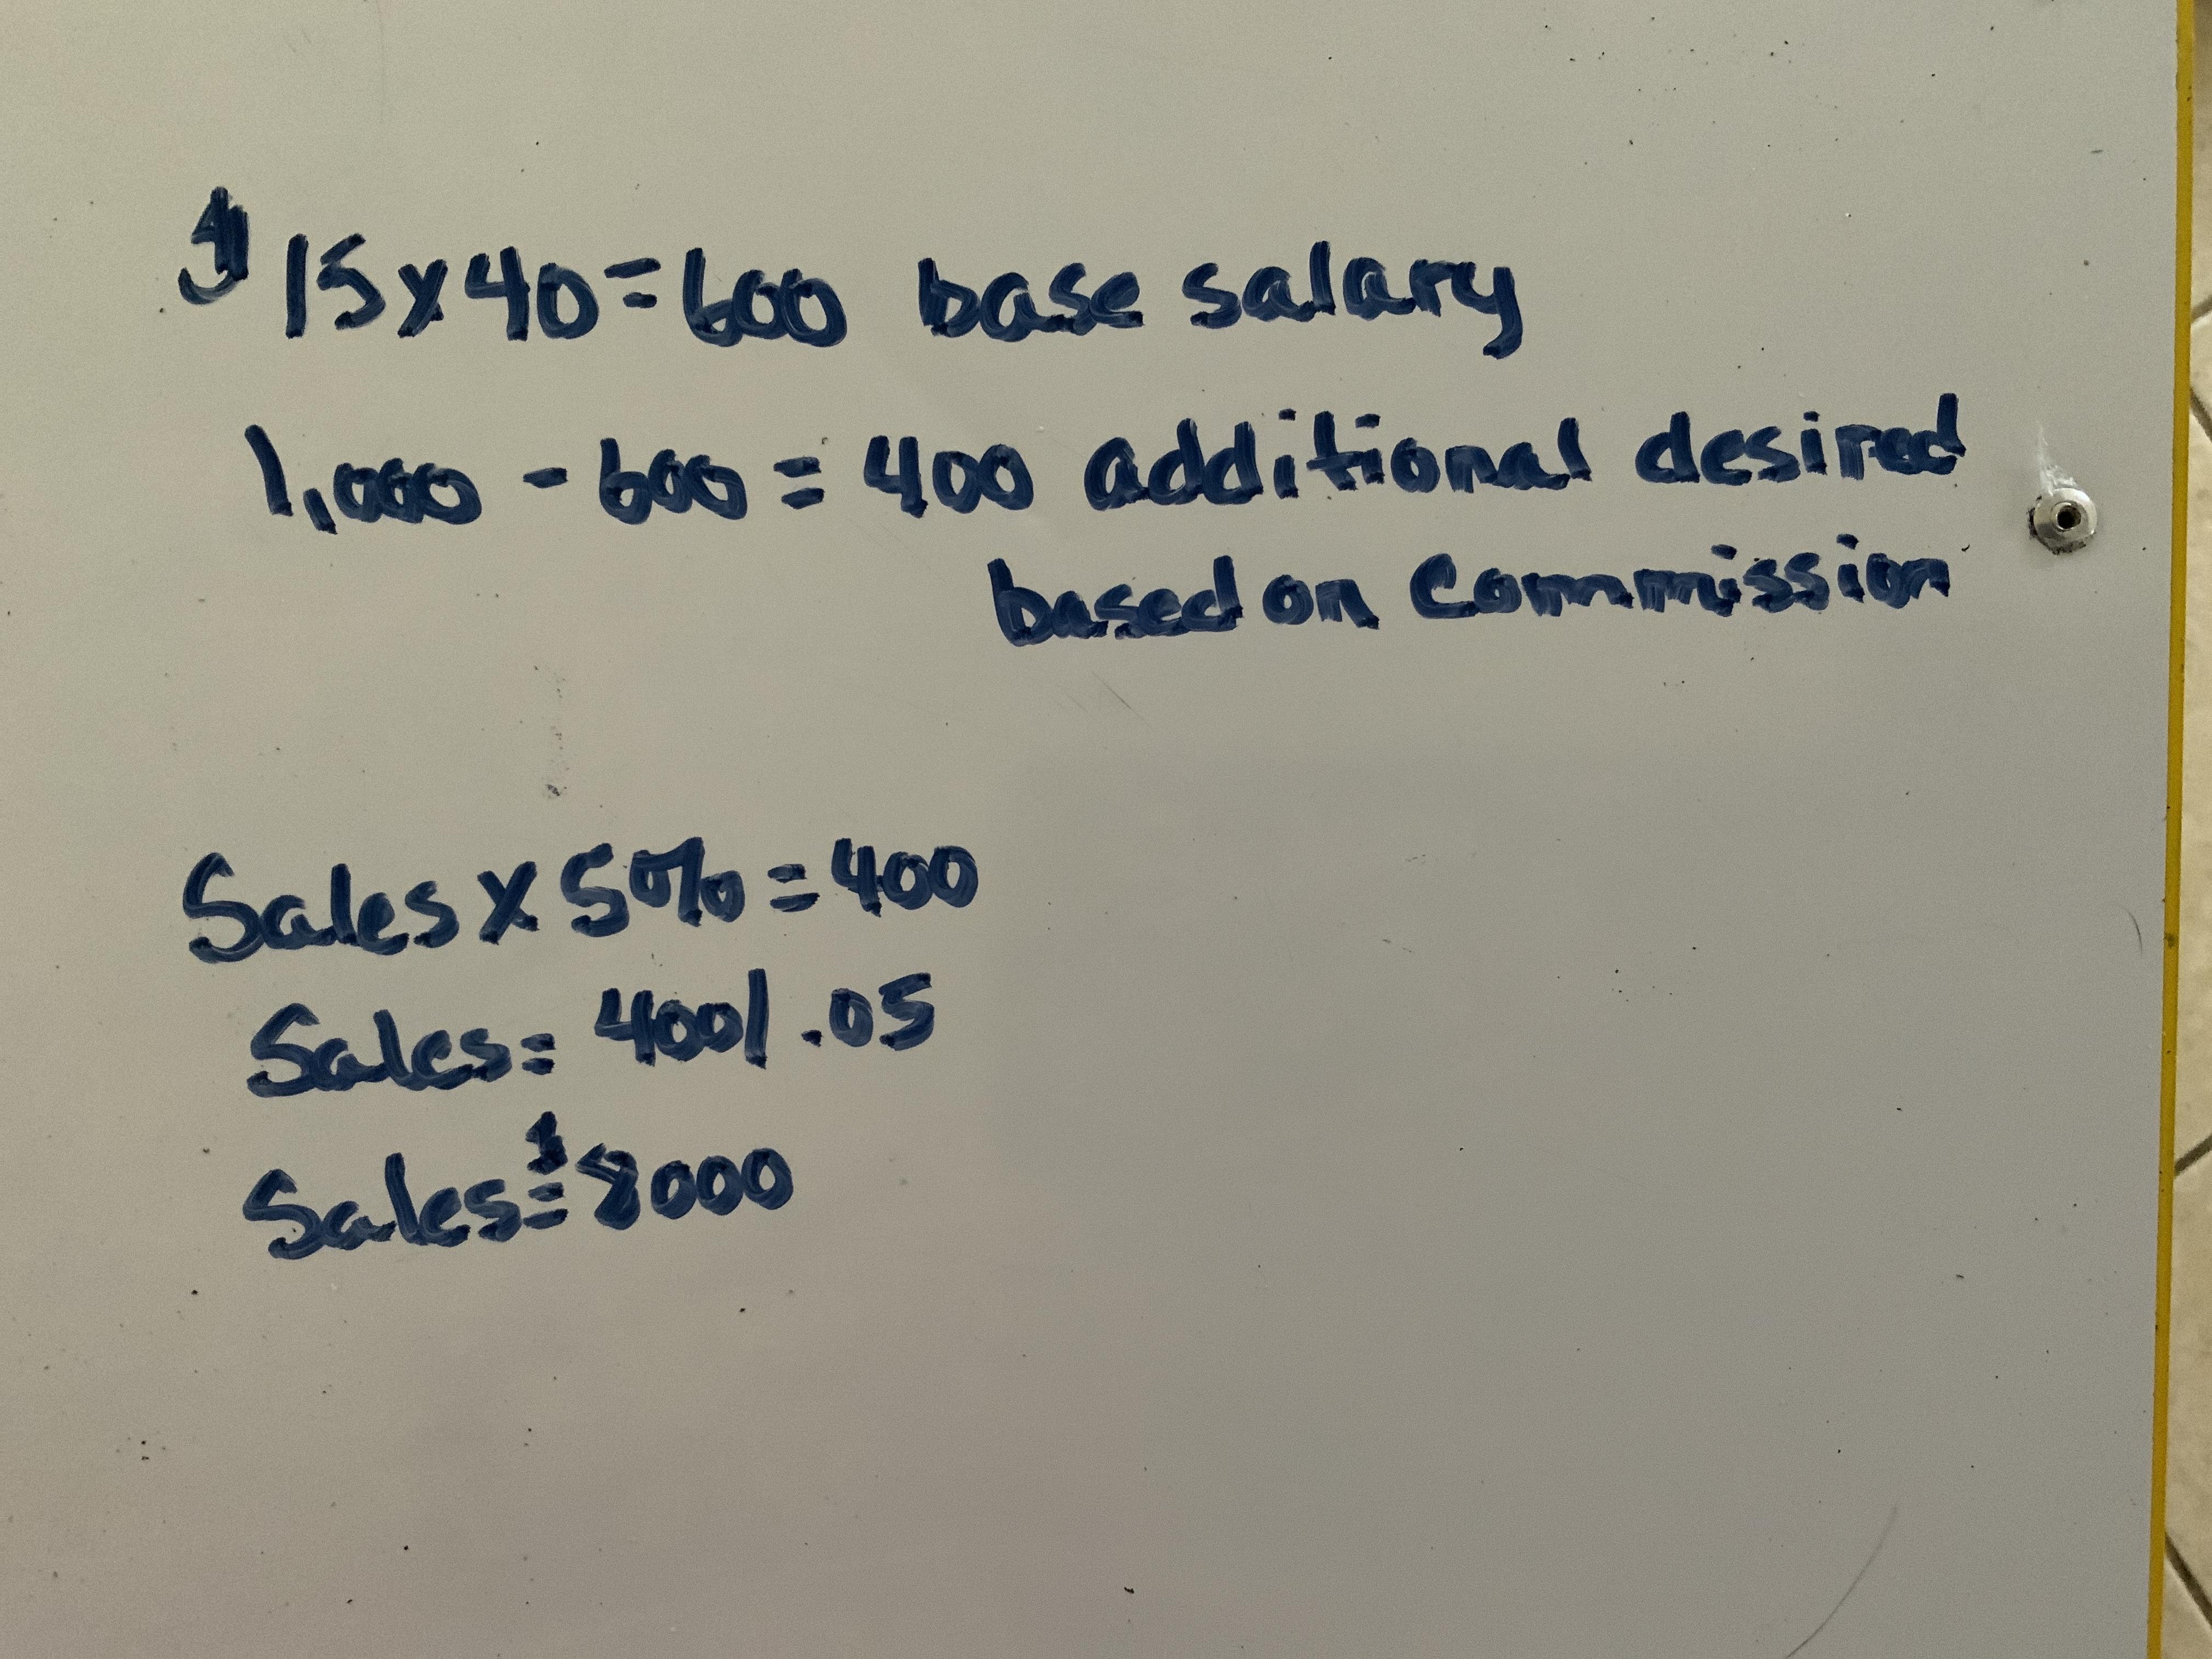 $15x40=600 base salary
1,000 - 600 = 400 additional desired
based on Commission
Sales x 5% = 400
Sales = 400/.05
Sales = $8000